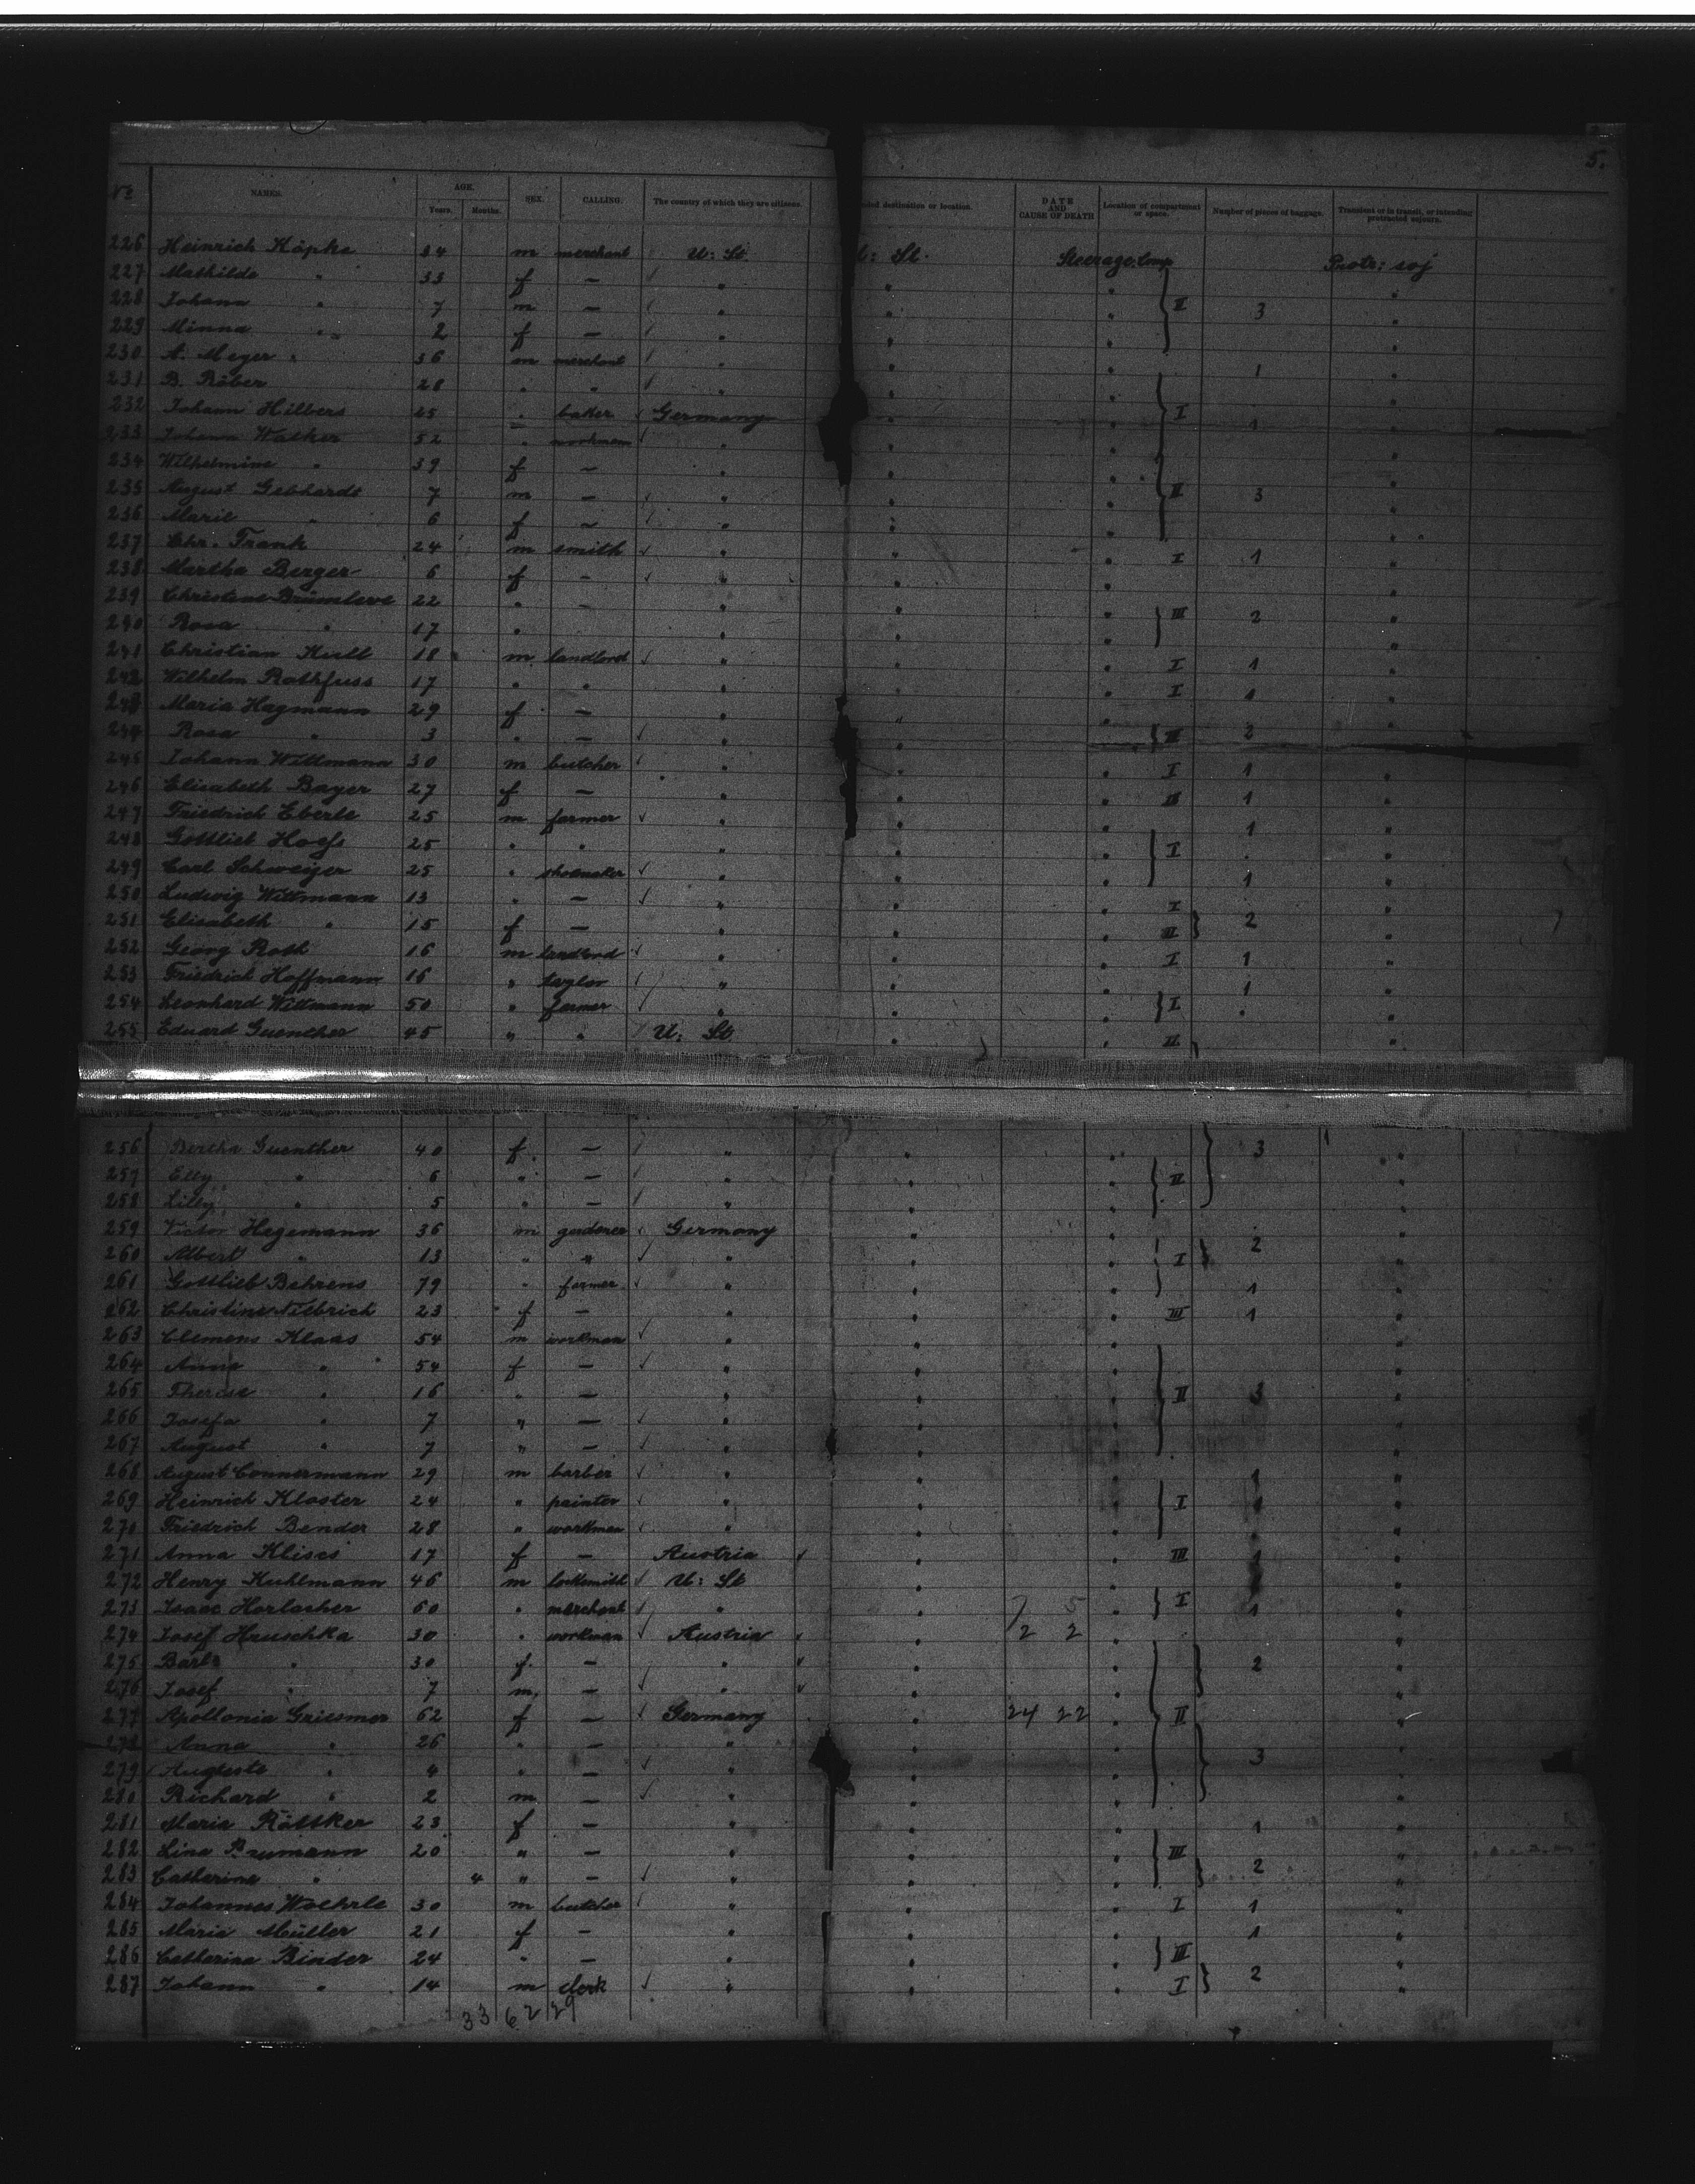 5.
No NAMES. AGE. Years. Months. SEX. CALLING. The country of which they are citizens. ded destination or location. DATE AND CAUSE OF DEATH Location of compartment or space. Number of pieces of baggage. Transient or in transit, or intending protracted sojourn.
226 Heinrich Köpke 34 m merchant U: St. U: St. Steerage. Comp Protr: soj
227 Mathilde " 33 f — " " " " "
228 Johann " 7 m — " " " II 3 "
229 Minna " 2 f — " " " "
230 A. Meyer 36 m merchant " " " 1 "
231 B. Röber 28 " " " " " "
232 Johann Hilbers 25 " baker Germany " " I 1 "
233 Johann Walker 52 " workman " " " "
234 Wilhelmine " 39 f — " " " "
235 August Gebhardt 7 m — " " " II 3 "
236 Marie " 6 f — " " " "
237 Chr. Frank 24 m smith " " " I 1 "
238 Martha Berger 6 f - " " " "
239 Christine Brümleve 22 " - " " " III 2 "
240 Rosa " 17 " " " " "
241 Christian Kull 18 m landlord " " " I 1 "
242 Wilhelm Rothfuss 17 " " " " " I 1 "
243 Maria Hagmann 29 f — " " " "
244 Rosa " 3 " — " " " III 2 "
245 Johann Wittmann 30 m butcher " " " I 1 "
246 Elisabeth Bayer 27 f — " " " III 1 "
247 Friedrich Eberle 25 m farmer " " " 1 "
248 Gottlieb 25 " " " " " I "
249 Carl Schweizer 25 " shoemaker " " " 1 "
250 Ludwig Wittmann 13 " — " " " I "
251 Elisabeth " 15 f — " " " III 2 "
252 Georg Roth 16 m landlord " " " I 1 "
253 Friedrich Hoffmann 16 " taylor " " " 1 "
254 Leonhard Wittmann 50 " farmer " " " I "
255 Eduard Guenther 45 " " U: St. " " II "
256 Bertha Guenther 40 f — " " " 3 "
257 Elly " 6 " — " " " II "
258 Lilly " 5 " — " " " "
259 Victor Hegemann 36 m gardener Germany " " "
260 Albert " 13 " " " " " I 2 "
261 Gottlieb Behrens 79 " farmer " " " 1 "
262 Christine 23 f — " " " III 1 "
263 Clemens Klaas 54 m workman " " " "
264 Anna " 54 f — " " " "
265 Therese " 16 " — " " " II 3 "
266 Josefa " 7 " — " " " "
267 August " 7 " — " " " "
268 August Connermann 29 m barber " " " 1 "
269 Heinrich Kloster 24 " painter " " " I 1 "
270 Friedrich Bender 28 " workman " " " "
271 Anna 17 f — Austria " " III 1 "
272 Henry Kuhlmann 46 m locksmith U: St " " "
273 Isaac Horlacher 60 " merchant " " 7 5 " I 1 "
274 Josef Hruschka 30 " workman Austria " 2 2 " "
275 Barb. " 30 f. — " " " 2 "
276 Josef " 7 m. — " " " "
277 Apollonia Griesmer 62 f — Germany " 24 22 " II "
278 Anna " 26 " — " " " 3 "
279 Auguste " 4 " — " " " "
280 Richard " 2 m — " " " "
281 Maria Röttker 23 f — " " " 1 "
282 Lina 20 " — " " " III "
283 Catherine " 4 " — " " " 2 "
284 Johannes Woehrle 30 m butcher " " " I 1 "
285 Maria Müller 21 f — " " " 1 "
286 Catherina Binder 24 " — " " " III "
287 Johann " 14 m clerk " " " I 2 "
33 62 29